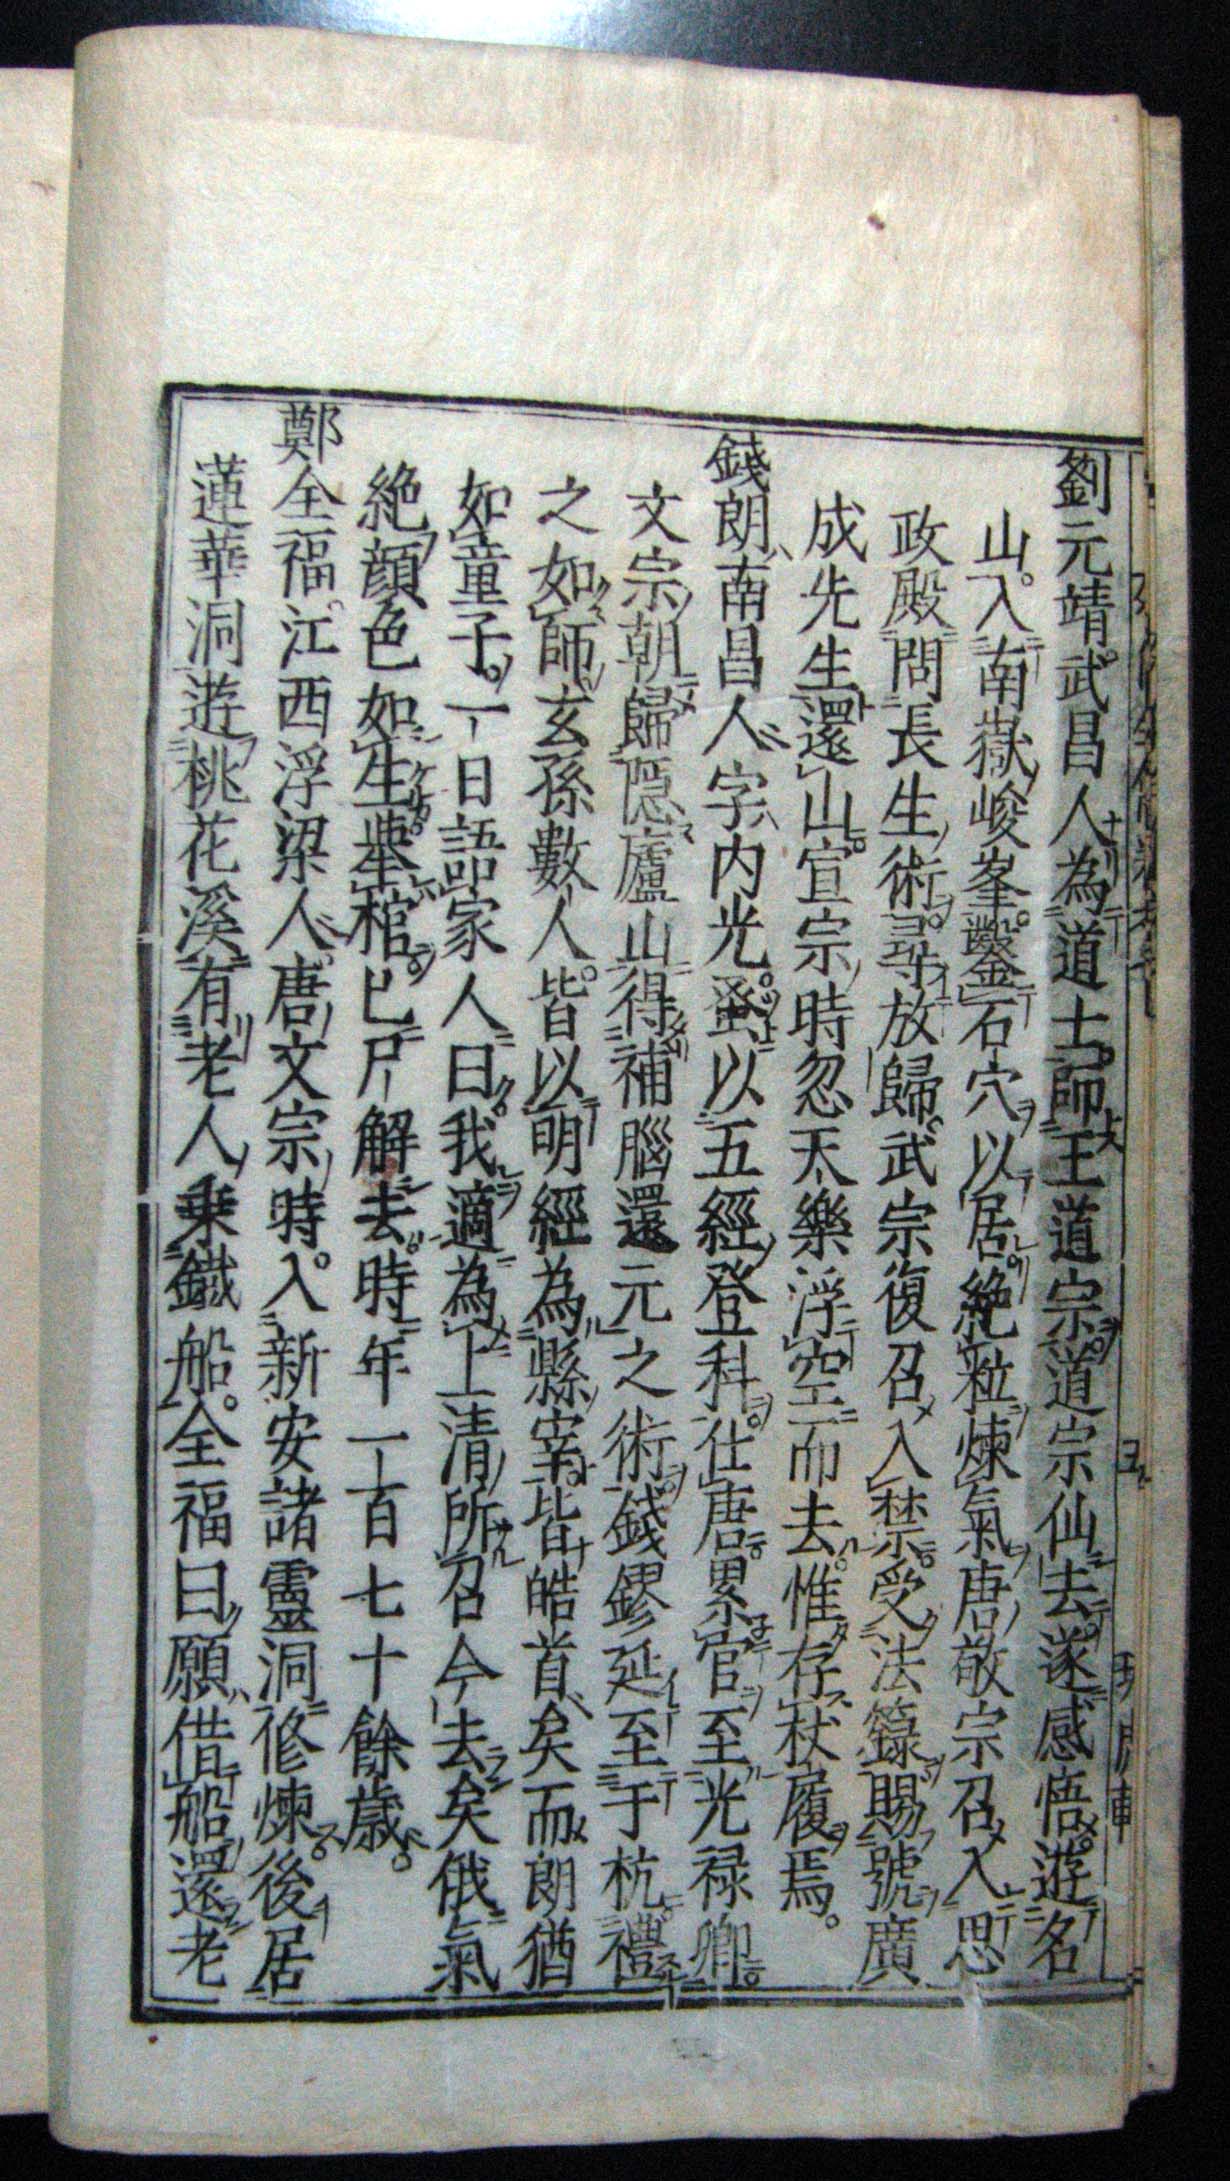 劉元靖武昌人為道士師王道宗道宗仙去遂感悟遊名
山入南嶽峻峯鑿石穴以居絶粒煉氣唐敬宗召入思
政殿問長生術尋放歸武宗復召入禁受法籙賜號廣
成先生還山宣宗時忽天樂浮空而去惟存杖履焉
錢朗南昌人字内光蚤以五經登科仕唐累官至光禄卿
文宗朝歸隱廬山得補腦還元之術錢鏐延至于杭禮
之如師玄孫數人皆以明經為縣宰皆皓首矣而朗猶
如童子一日語家人曰我適為上清所召今去矣俄氣
絶顔色如生舉棺已尸解去時年一百七十餘歳
鄭全福江西浮梁人唐文宗時入新安諸靈洞修煉後居
蓮華洞遊桃花溪有老人乗鐵船全福曰願借船還老